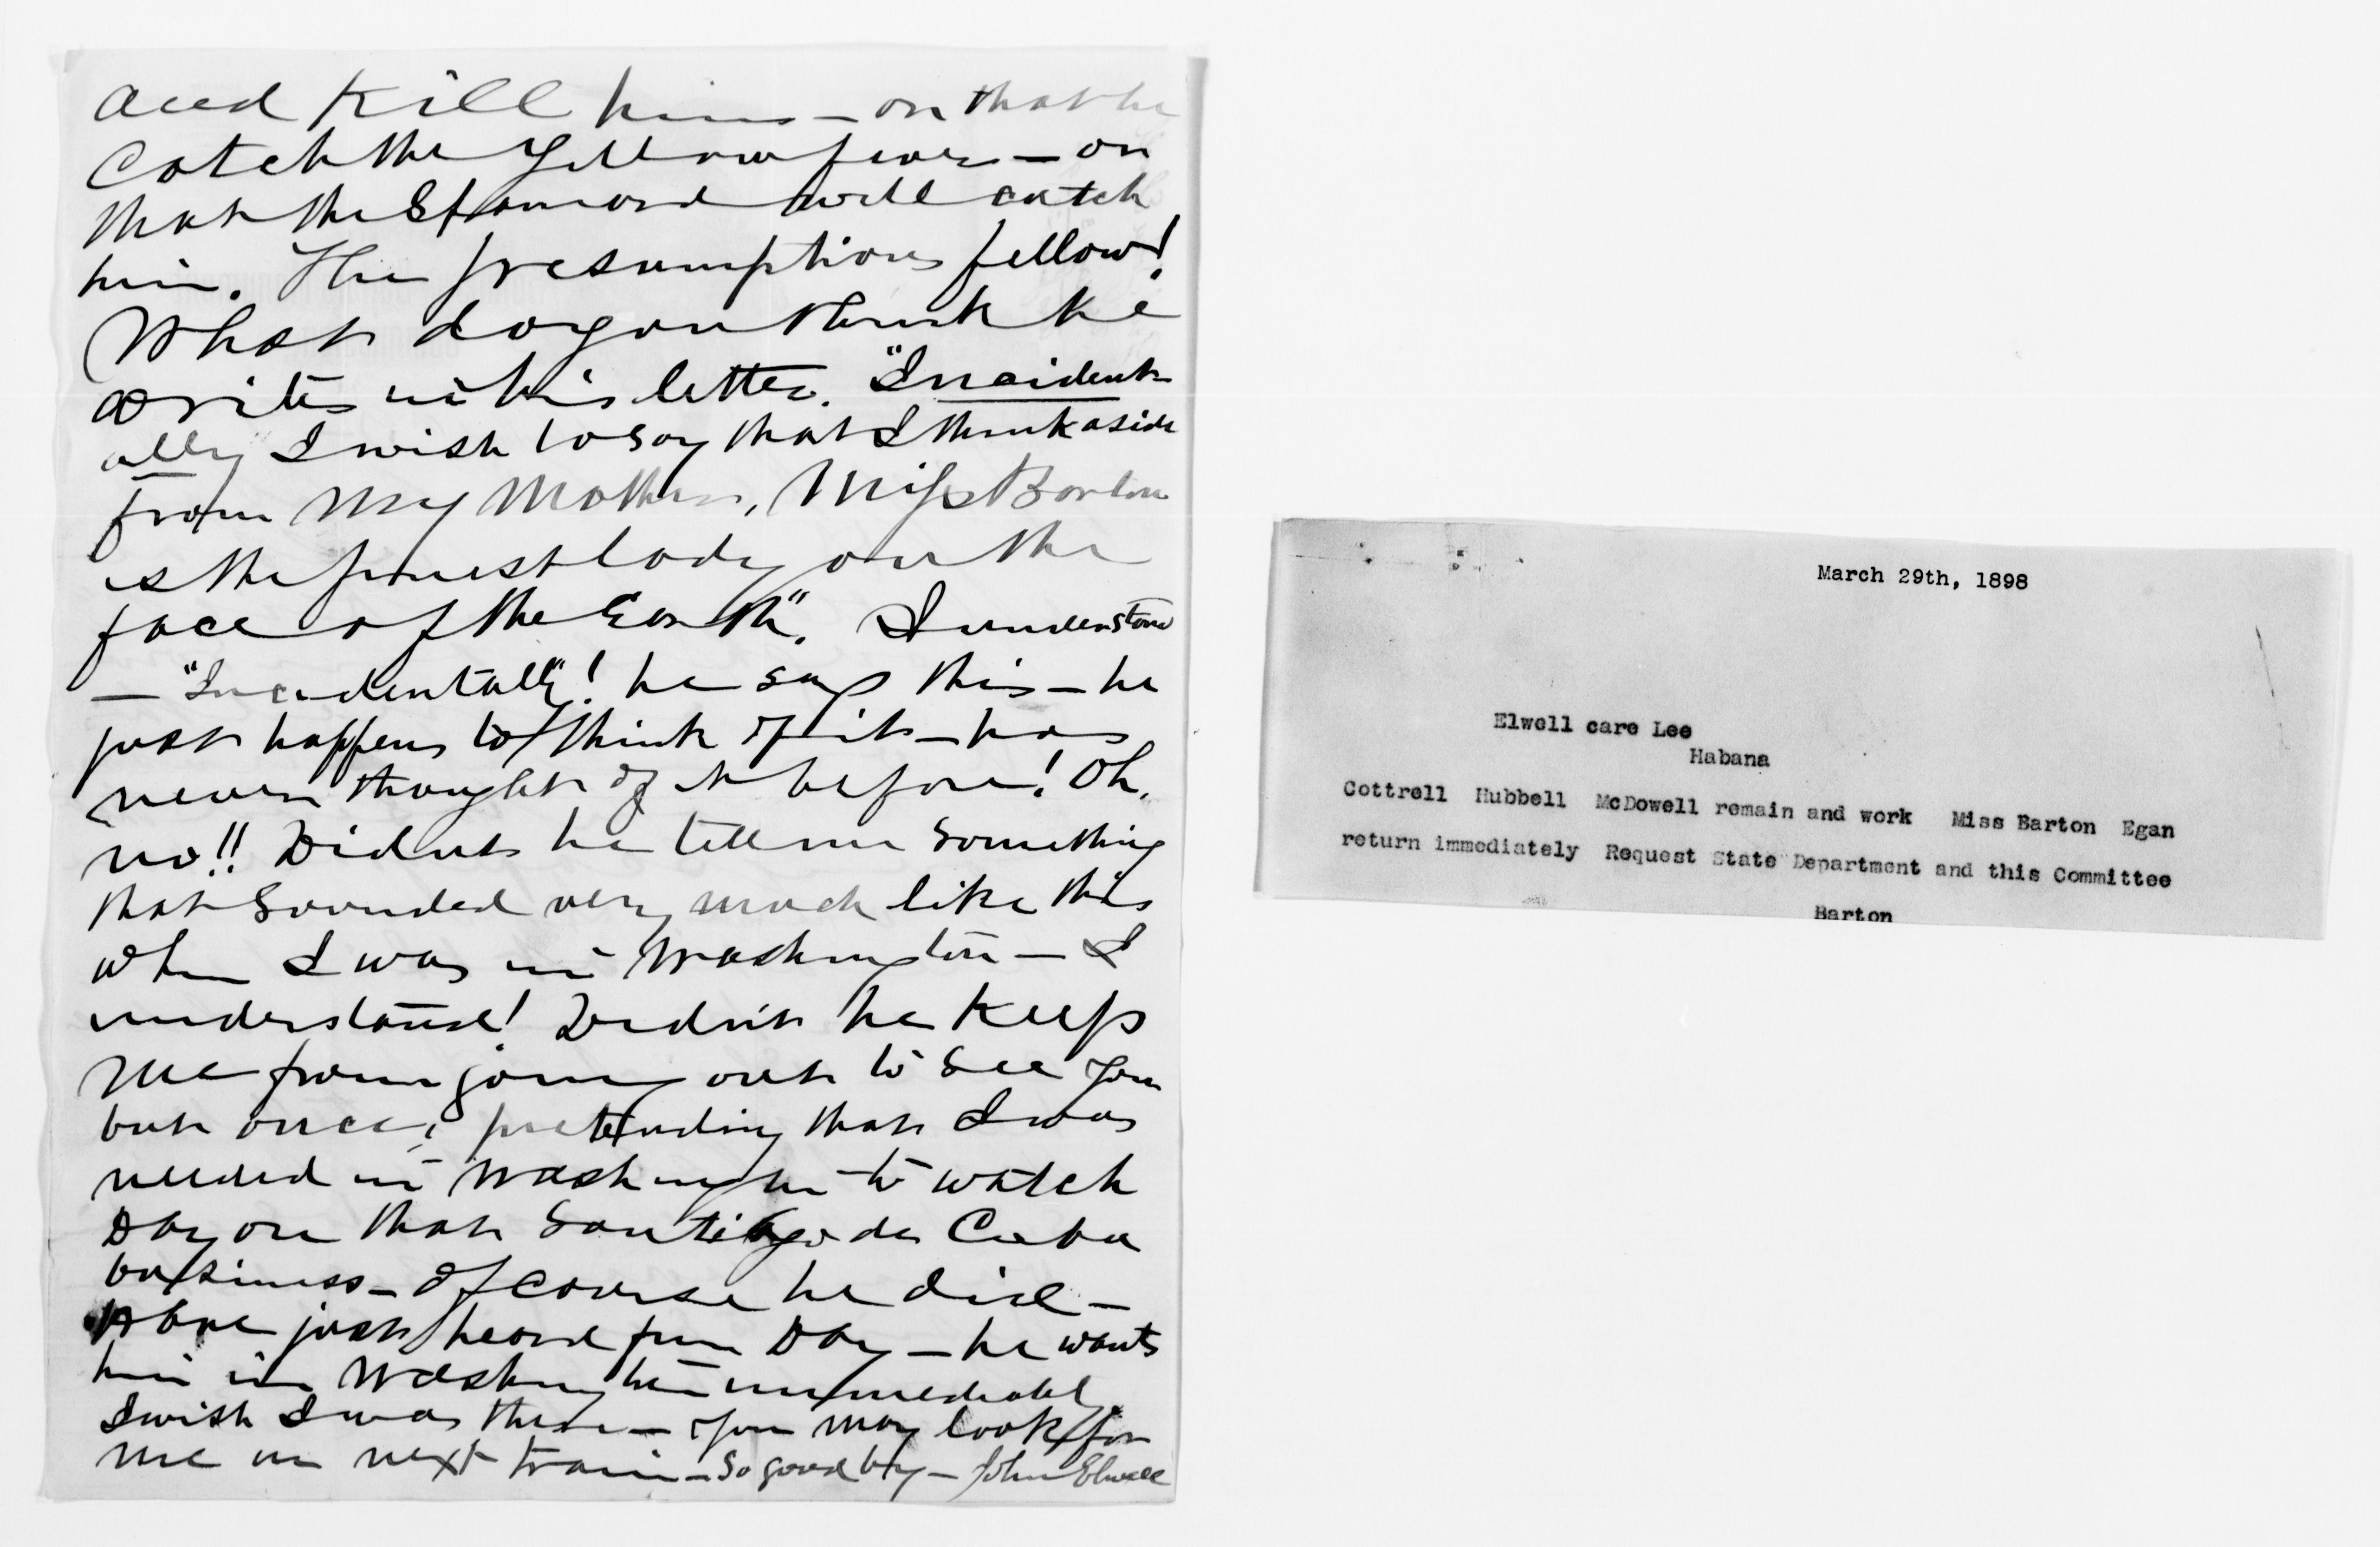 and Kill him — or that he
Catch the Yellow fever — or
that the Spaniard will catch
him. The presumptious fellow!
What do you think he
writes in his letter. "Incident-
ally I wish to say that I think aside
from my Mother, Miss Barton
is the finest lady on the
face of the Earth". I understand
— "Incidentally"! he says this — he
just happens to think of it — has
never thought of it before! Oh,
no!! Didnt he tell me something
that sounded very much like this
when I was in Washington — I
understand! Didn't he keep
me from going out to see you
but once, pretending that I was
needed in Washington to watch
Day on that Santiago de Cuba
business — Of course he did —
Have just heard from Day — he wants
him in Washington immediately
I wish I was there — You may look for
me on next train — So good by — John Elwell
March 29th, 1898
Elwell care Lee
Habana
Cottrell Hubbell McDowell remain and work Miss Barton Egan
return immediately Request State Department and this Committee
Barton